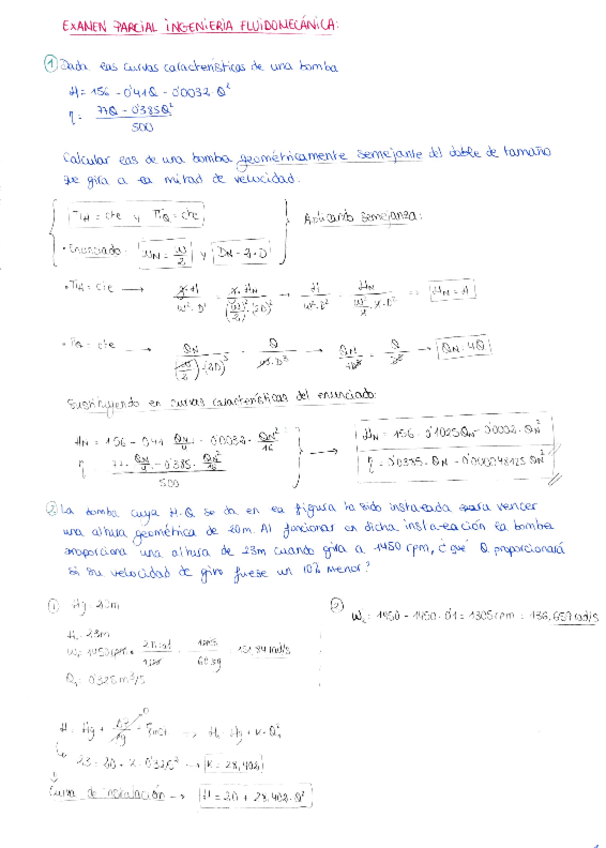 EXAMEN PARCIAL INGENIERIA FLUIDOMECÁNICA:
① Dada las curvas características de una bomba
H = 156 - 0'41Q - 0'0032·Q²
η = (77Q - 0'385Q²) / 500
Calcular las de una bomba geométricamente semejante del doble de tamaño
que gira a la mitad de velocidad.
πH = cte y πQ = cte
Aplicando semejanza:
• Enunciado: y DN = 2·D
• πH = cte → HN = H
• πQ = cte → QN = 4Q
Sustituyendo en curvas características del enunciado:
HN = 156 - 0'41 QN/4 - 0'0032· QN²/16 → HN = 156 - 0'1025QN - 0'0002·QN²
η = (77·QN/4 - 0'385·QN²/16) / 500
η = 0'0385·QN - 0'000048125QN²
② La bomba cuya H-Q se da en la figura ha sido instalada para vencer
una altura geométrica de 20m. Al funcionar en dicha instalación la bomba
proporciona una altura de 23m cuando gira a 1450 rpm, ¿qué Q proporcionará
si su velocidad de giro fuese un 10% menor?
① Hg = 20m
② W2 = 1450 - 1450·0'1 = 1305 rpm = 136,659 rad/s
H1 = 23m
W1 = 1450 rpm · = 151'84 rad/s
Q1 = 0'325 m³/s
H = Hg + → H1 = Hg + K·Q1²
23 = 20 + K·0'325² → K = 28,402
Curva de instalación → H = 20 + 28,402·Q²